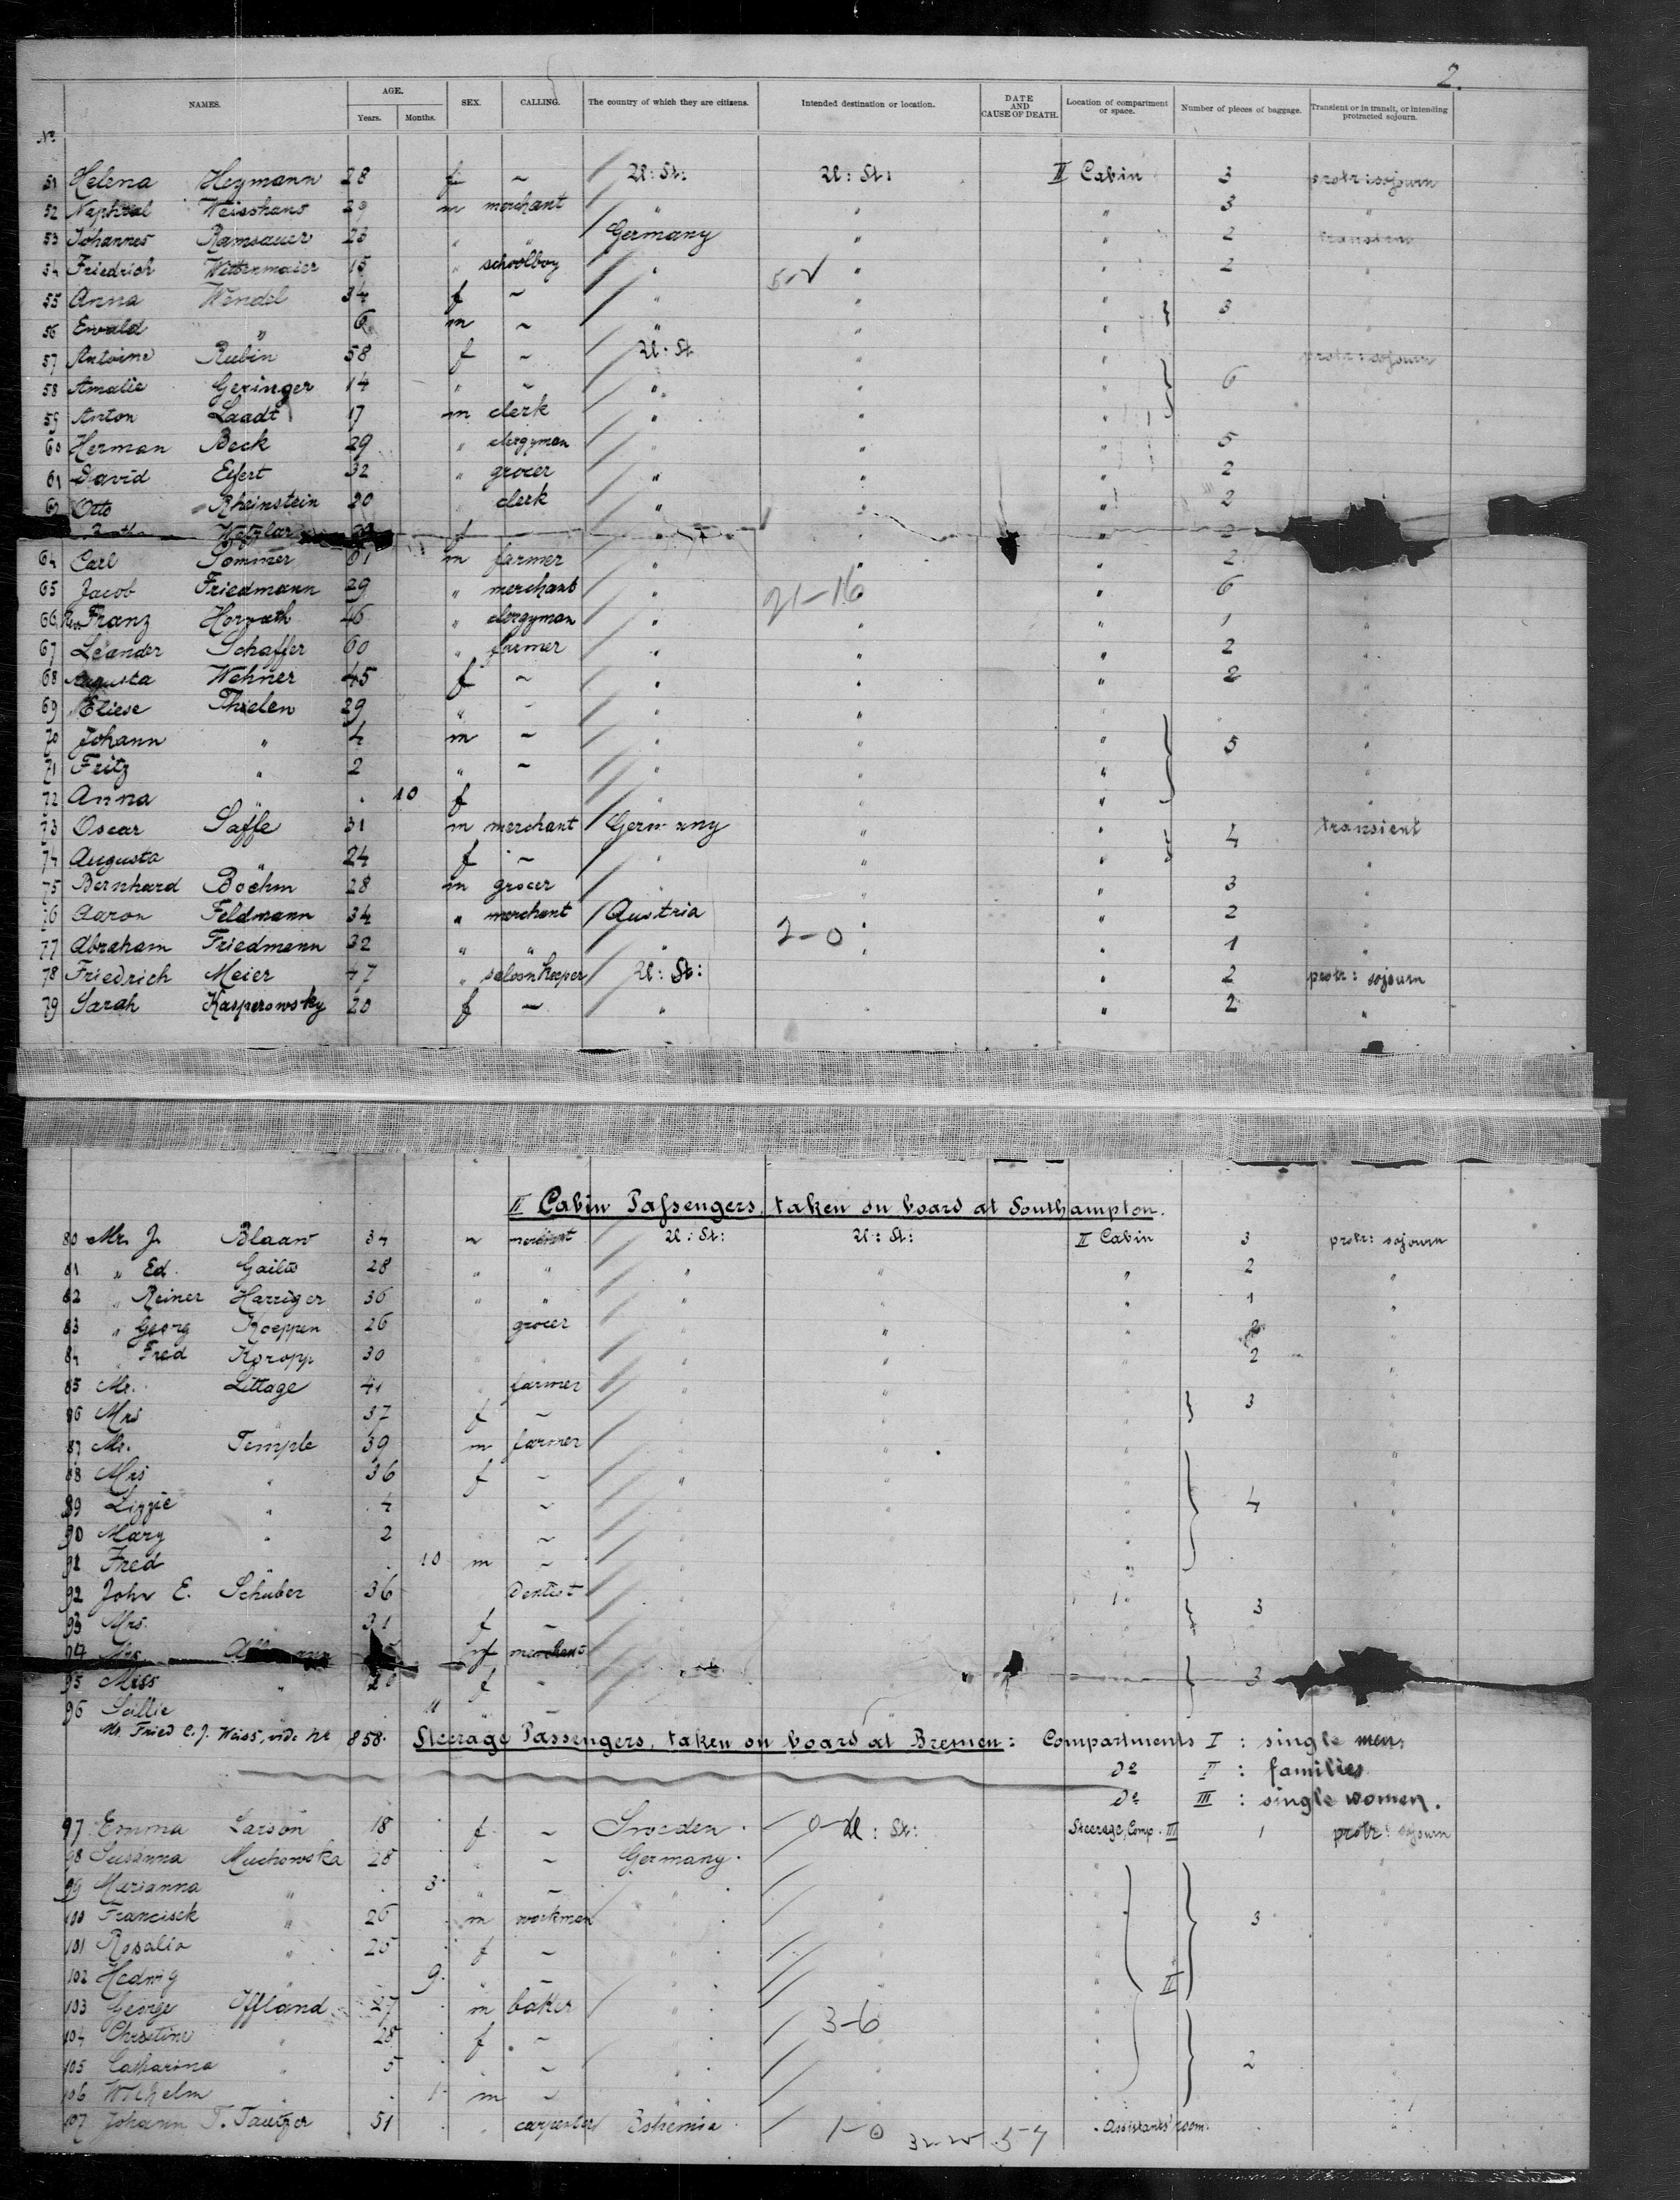 2.
NAMES. AGE. Years. Months. SEX. CALLING. The country of which they are citizens. Intended destination or location. DATE AND CAUSE OF DEATH. Location of compartment or space. Number of pieces of baggage. Transient or in transit, or intending protracted sojourn.
No
51 Helena Heymann 28 f ~ U: St: U: St: II Cabin 3 protr: sojourn
52 Weisshaus 29 m merchant " " " 3 "
53 Johannes Ramsauer 23 " " Germany " " 2 transient
54 Friedrich Wittenmaier 15 " schoolboy " " " 2 "
55 Anna Wendel 34 f ~ " " " 3
56 Ewald " 6 m ~ " " " "
57 Antoine Rubin 58 f ~ U: St " " protr: sojourn
58 Amalie Geringer 14 " ~ " " " 6
59 Anton Laadt 17 m clerk " " "
60 Herman Beck 29 " clergyman " " " 5
61 David Eifert 32 " grocer " " " 2
62 Otto Rheinstein 20 clerk " " " 2
Wetzlar f ~ " " " 2
64 Carl Sommer 61 m farmer " " " 2
65 Jacob Friedmann 29 " merchant " 21-16 " 6
66 Rev. Franz Horvath 46 " clergyman " " " 1 "
67 Leander Schaffer 60 " farmer " " " 2 "
68 Augusta Wehner 45 f ~ " " " 2 "
69 Eliese Thielen 29 " ~ " " "
70 Johann " 4 m ~ " " " 5 "
71 Fritz " 2 " ~ " " " "
72 Anna . 10 f " " " "
73 Oscar Saffe 31 m merchant Germany " " 4 transient
74 Augusta " 24 f ~ " " " "
75 Bernhard Boehm 28 m grocer " " " 3 "
76 Aaron Feldmann 34 " merchant Austria " " 2 "
77 Abraham Friedmann 32 " " " 2-0 " " 1 "
78 Friedrich Meier 47 " saloonkeeper U: St: " 2 protr: sojourn
79 Sarah Kasperowsky 20 f ~ " " " 2 "
II Cabin Passengers, taken on board at Southampton.
80 Mr. J. Blaaw 34 m merchant U: St: U: St: II Cabin 3 protr: sojourn
81 " Ed. 28 " " " " " 2 "
82 " Reiner Harriger 36 " " " " " 1 "
83 " Georg Koeppen 26 grocer " " " "
84 " Fred Koropp 30 " " " " " 2
85 Mr. Littage 41 " farmer " " 3 "
86 Mrs " 37 f ~ " " "
87 Mr. Temple 39 m farmer " " "
88 Mrs " 36 f ~ " " " "
89 Lizzie " 4 ~ " " 4 "
90 Mary " 2 ~ "
91 Fred " . 10 m ~ "
92 John E. Schuber 36 Dentist " 3
93 Mrs. " 31 f ~
94 Mrs. f merchant
95 Miss " f ~ 3
96 Sallie " 11 " ~
Mr. Fried C. J. Weiss, vide No 858. Steerage Passengers, taken on board at Bremen: Compartments I : single men,
do II : families
do III : single women.
97 Emma Larson 18 f ~ Sweden. 0- U: St: Steerage, Comp. III 1 protr: sojourn
98 Susanna Muchowska 28 " ~ Germany. " "
99 Marianna " . 3 " ~ " " "
100 Francisek " 26 m workman " " 3 "
101 Rosalia " 25 f ~ " "
102 Hedwig " 9 " ~ " " II
103 George Iffland 27 m baker " "
104 Christine " 28 f ~ " 3-6 "
105 Catharina " 5 " ~ " " 2
106 Wilhelm " . 1 m ~ " "
107 Johann T. Tautzer 51 " carpenter Bohemia 1-0 Assistants' room.